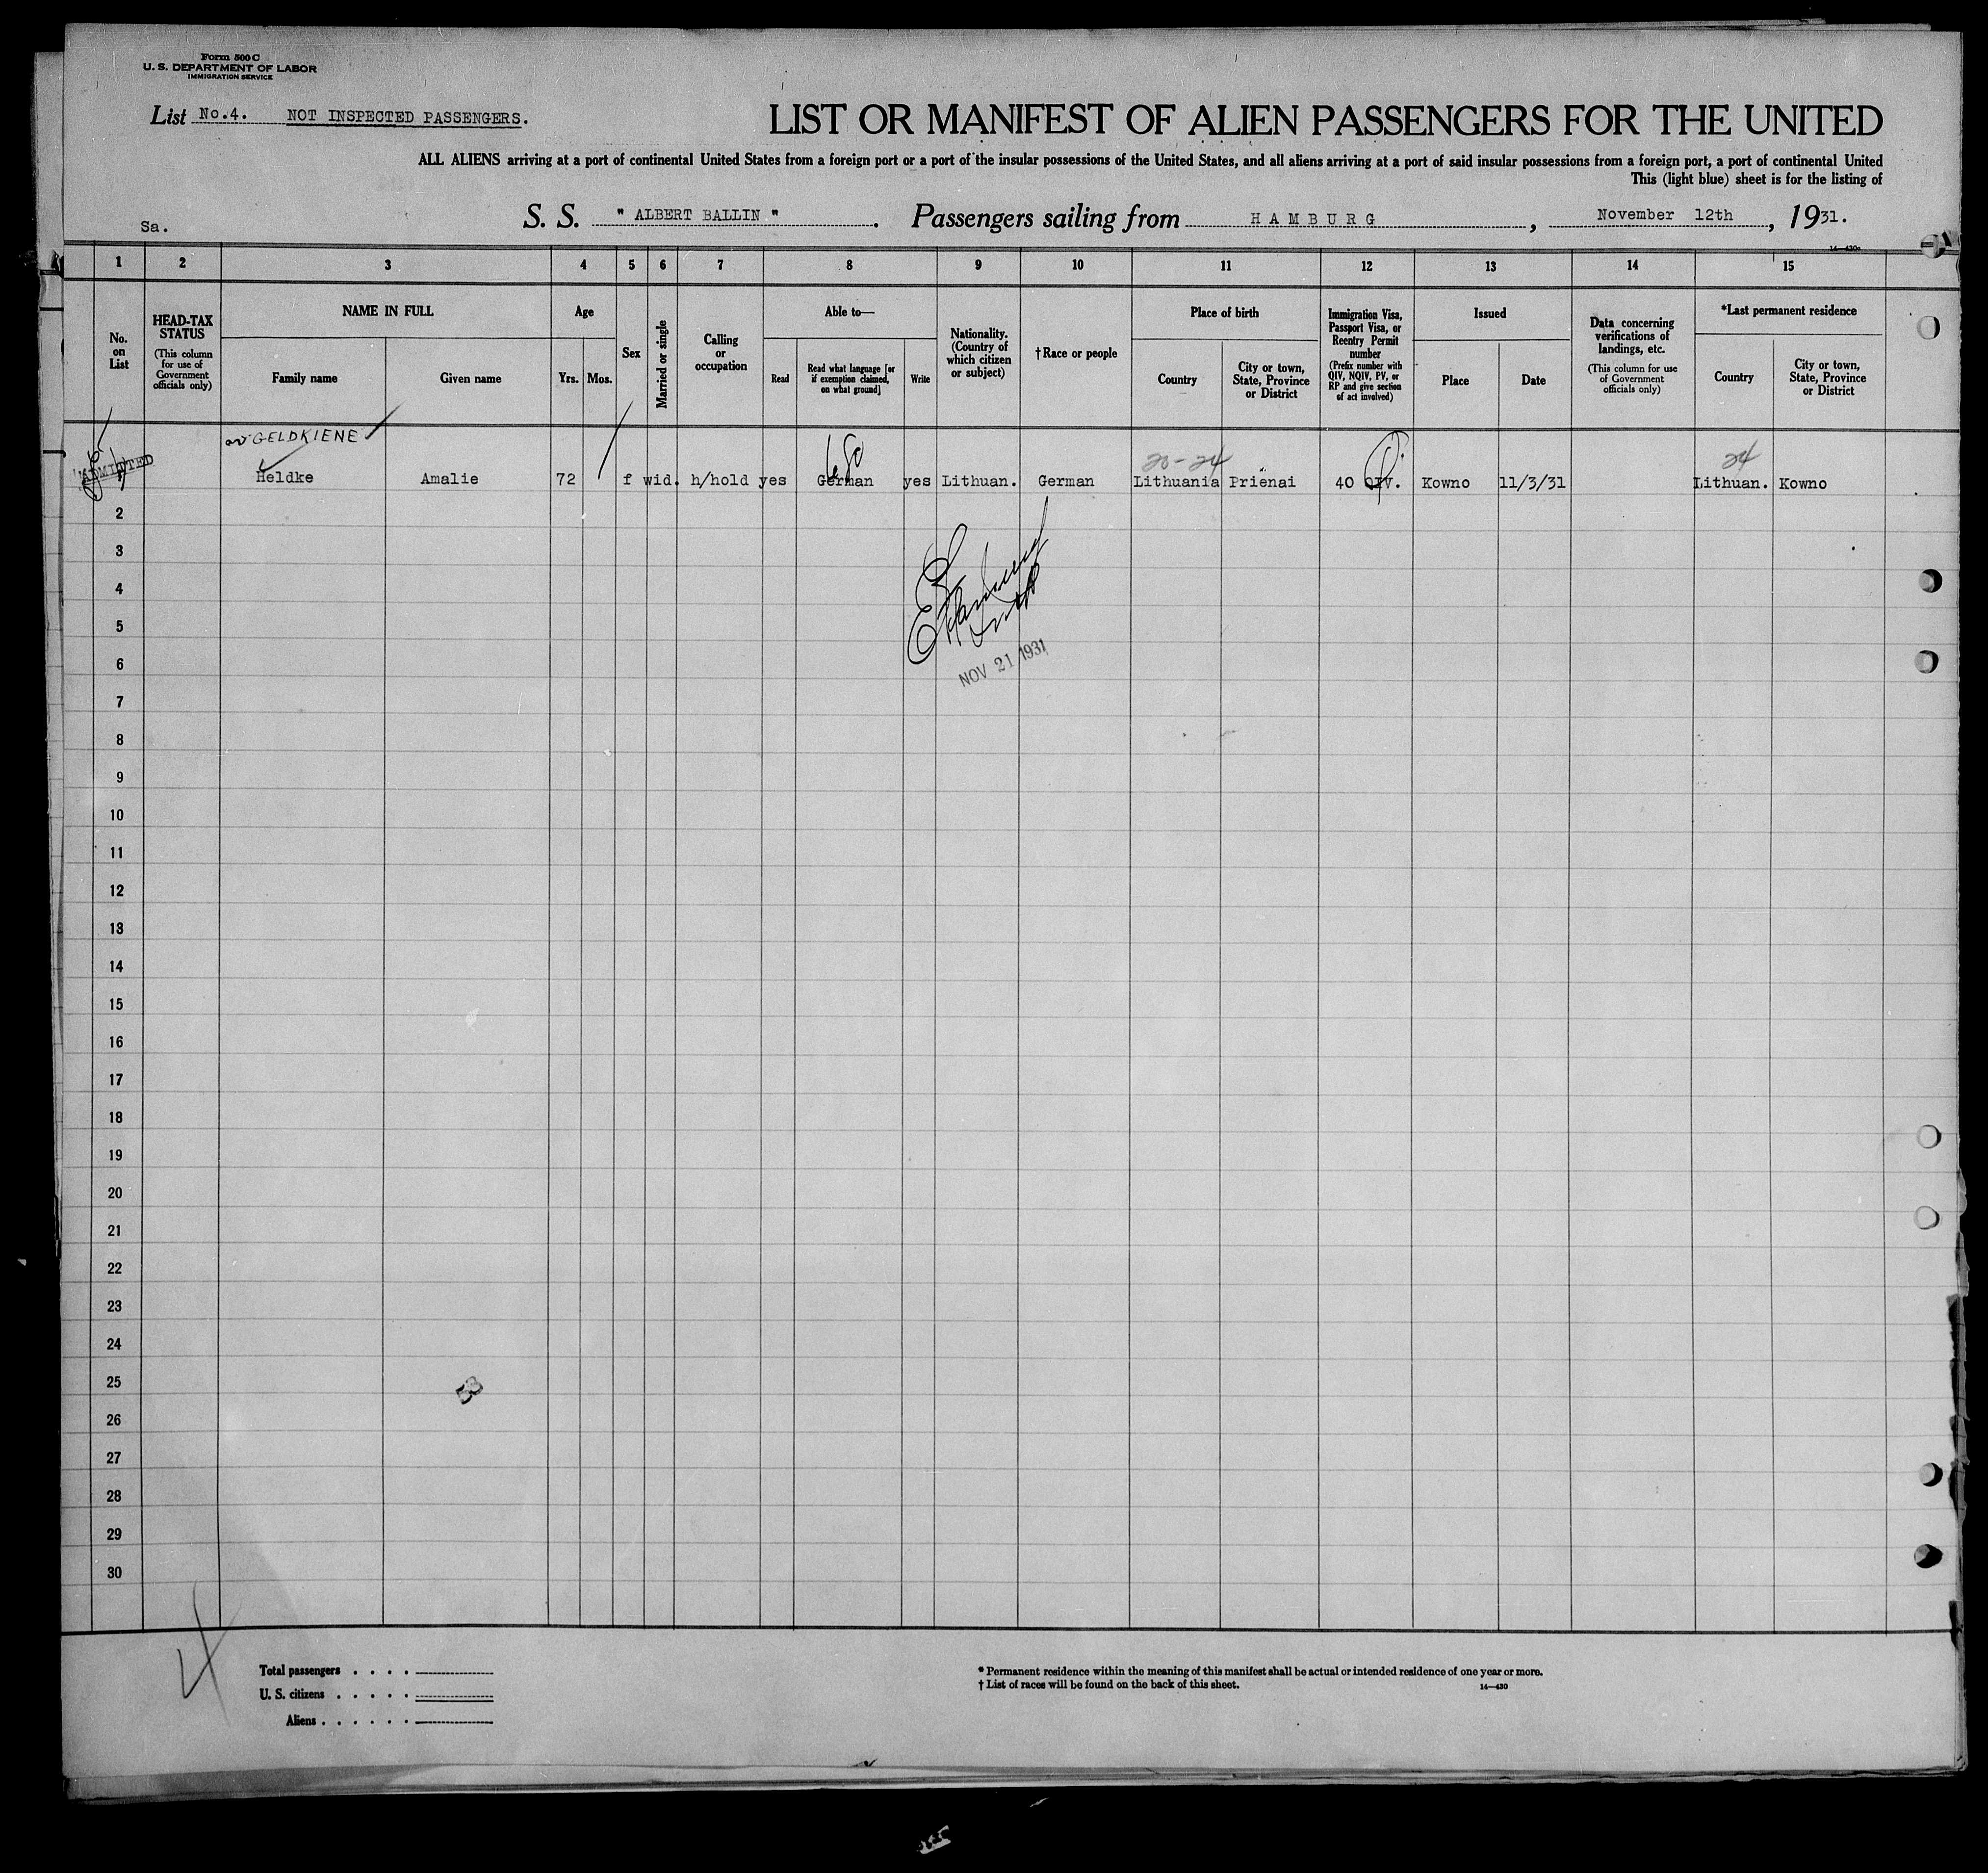 Form 500 C
U. S. DEPARTMENT OF LABOR
IMMIGRATION SERVICE
List No.4. NOT INSPECTED PASSENGERS.
LIST OR MANIFEST OF ALIEN PASSENGERS FOR THE UNITED
ALL ALIENS arriving at a port of continental United States from a foreign port or a port of the insular possessions of the United States, and all aliens arriving at a port of said insular possessions from a foreign port, a port of continental United
This (light blue) sheet is for the listing of
Sa.
S. S. " ALBERT BALLIN ". Passengers sailing from HAMBURG, November 12th, 1931.
1 2 3 4 5 6 7 8 9 10 11 12 13 14 15
No. on List
HEAD-TAX STATUS (This column for use of Government officials only)
NAME IN FULL
Family name
Given name
Age
Yrs. Mos.
Sex
Married or single
Calling or occupation
Able to—
Read
Read what language [or if exemption claimed, on what ground]
Write
Nationality. (Country of which citizen or subject)
† Race or people
Place of birth
Country
City or town, State, Province or District
Immigration Visa, Passport Visa, or Reentry Permit number (Prefix number with QIV, NQIV, PV, or RP and give section of act involved)
Issued
Place
Date
Data concerning verifications of landings, etc. (This column for use of Government officials only)
*Last permanent residence
Country
City or town, State, Province or District
or GELDKIENE
20-24
24
ADMITTED
Heldke Amalie 72 f wid. h/hold yes German yes Lithuan. German Lithuania Prienai 40 QIV. Kowno 11/3/31 Lithuan. Kowno
2
3
4
5
6
NOV 21 1931
7
8
9
10
11
12
13
14
15
16
17
18
19
20
21
22
23
24
25
53
26
27
28
29
30
Total passengers . . . .
U. S. citizens . . . . .
Aliens . . . . . .
* Permanent residence within the meaning of this manifest shall be actual or intended residence of one year or more.
† List of races will be found on the back of this sheet.
14—430